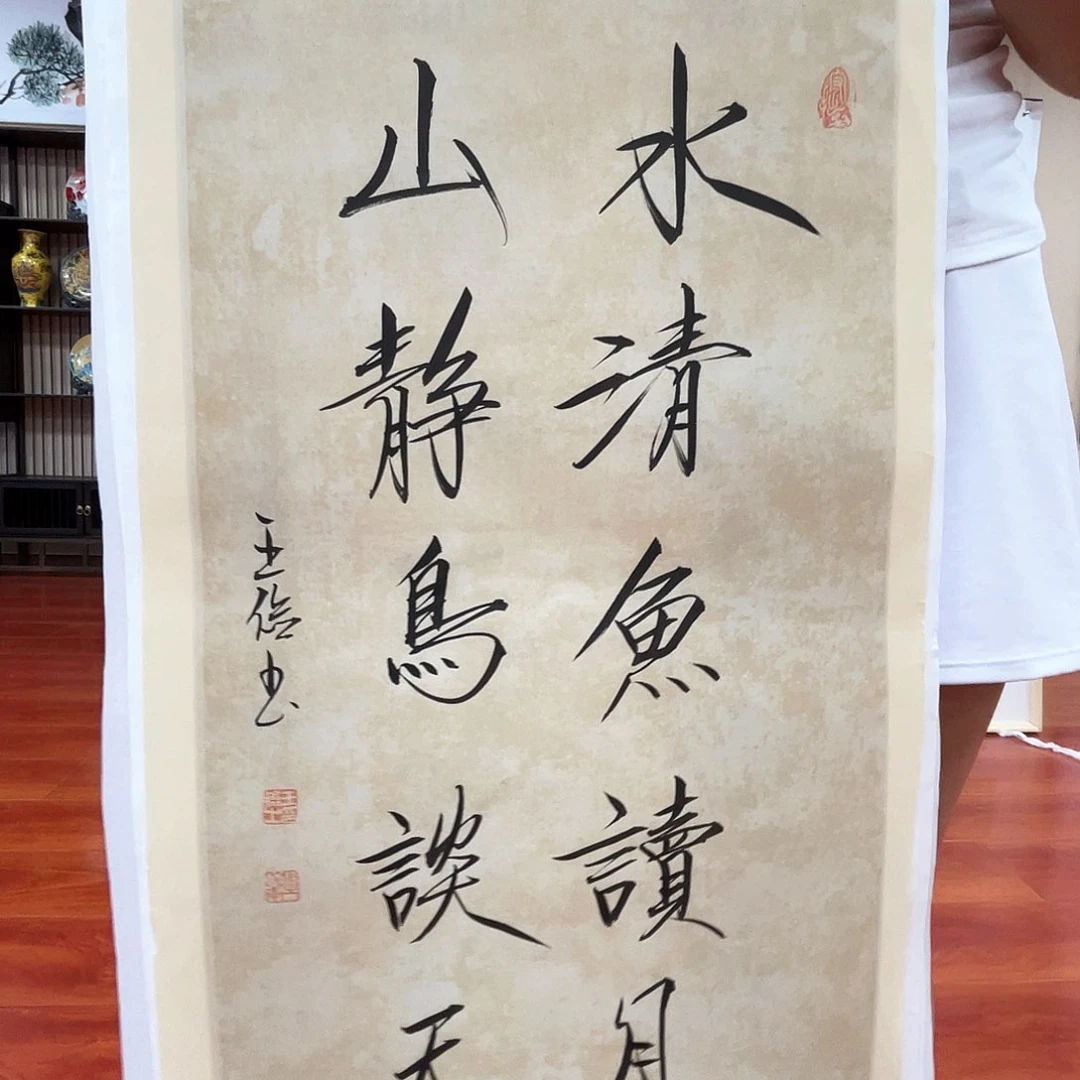 水清魚讀月
山靜鳥談天
王俭书